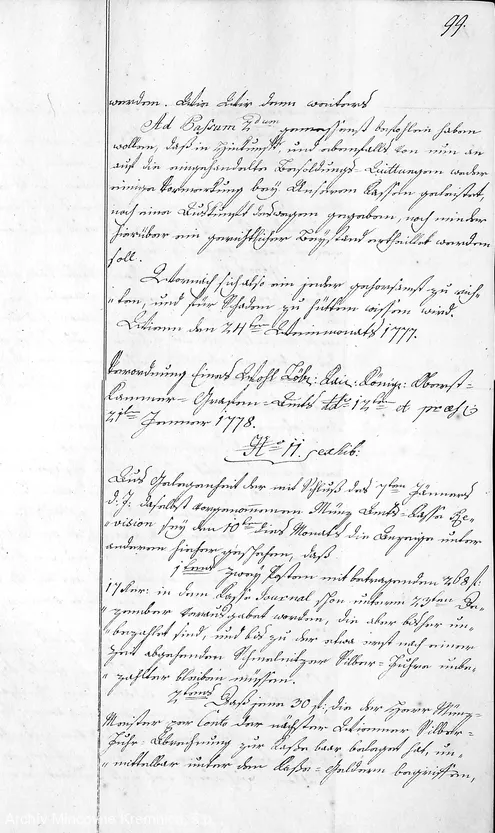 99.
werden. Wie Wir dann weiters
Ad Passum 2dum gemessenst befohlen haben
wollen, daß in Hinkunft, und ebenfalls von nun an
auf die eingehandelte Besoldungs-Quittungen weder
einige Vormerkung bey Unseren Kassen geleistet,
noch eine Auskunft deswegen gegeben, noch minder
hierüber ein gerichtlicher Beystand ertheilet werden
soll.
Wornach sich also ein jeder gehorsamst zu rich-
ten, und für Schaden zu hütten wissen wird.
Wienn den 24ten Weinmonats 1777.
Verordnung Eines Wohl Löbl: Kais: Königl: Oberst-
Kammer-Grafen-Amts ddo 12ten et praes:
21ten Jenner 1778.
No 11. exhib:
Aus Gelegenheit der mit Schluß des Jänners
d. J: daselbst vorgenommenen Münz Amts-Kassa Re-
vision sey den 10ten dies Monats die Anzeige unter
anderem hieher geschehen, daß
1tens zwey Posten mit betragenden 268 f:
17 kr: in dem Kassa Journal schon unterm 23ten De-
zember verausgabet worden, die aber bisher un-
bezahlt sind, und bis zu der etwa erst nach einer
Zeit abgehenden Schmelnitzer Silber-Fuhre unbe-
zahlter bleiben müssen.
2tens Daß jene 30 f: die der Herr Münz-
Meister per Conto der nächsten Wienner Silber-
Fuhr-Abrechnung zur Kassa baar beleget hat, un-
mittelbar unter den Kassa-Geldern begriffen,
Archív Mincovne Kremnica, š.p.